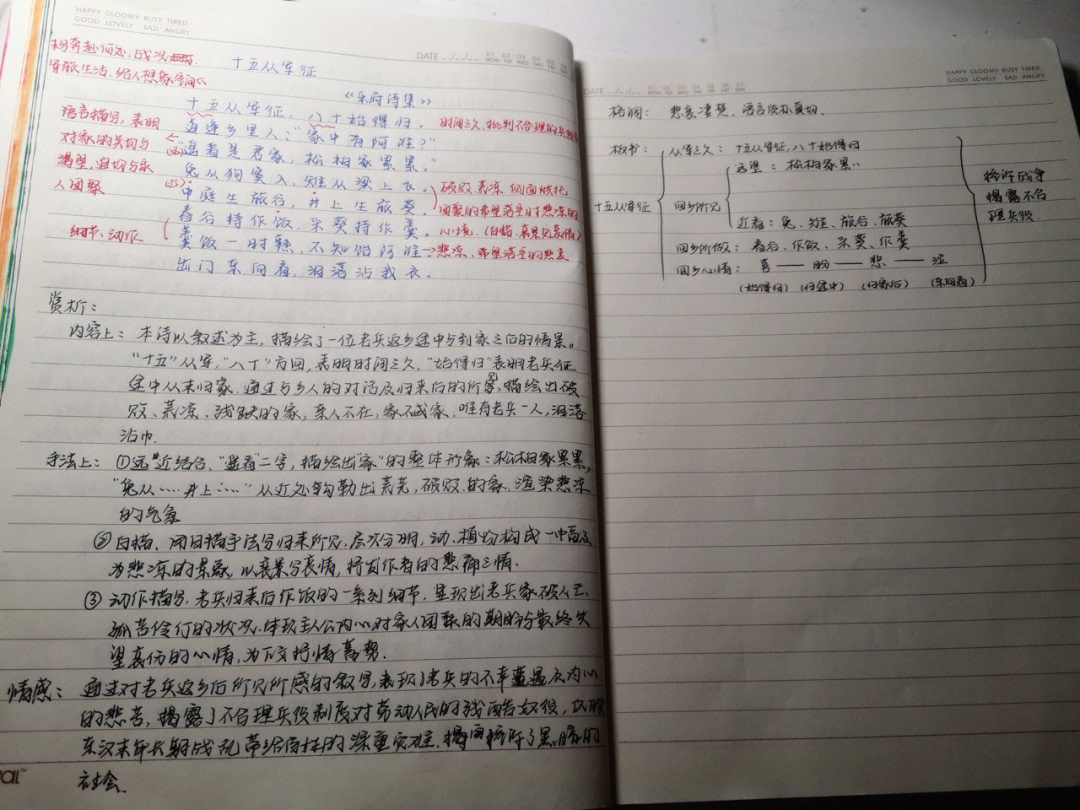 HAPPY GLOOMY BUSY TIRED
GOOD LOVELY SAD ANGRY
DATE
01 02 03 04 05
MON TUE WED THU FRI
十五从军征
《乐府诗集》
十五从军征，八十始得归。
道逢乡里人："家中有阿谁？"
"遥看是君家，松柏冢累累。"
兔从狗窦入，雉从梁上飞。
中庭生旅谷，井上生旅葵。
舂谷持作饭，采葵持作羹。
羹饭一时熟，不知饴阿谁。
出门东向看，泪落沾我衣。
军旅生活，给人想象空间
时间之久，批判不合理的兵役
语言描写，表明
对家的关切与
渴望，迫切与家
人团聚
细节、动作
破败、荒凉，侧面烘托
团聚的希望落空时悲凉的
心境。（白描，哀景见哀情）
→悲凉，希望落空的悲哀
赏析：
内容上：本诗以叙述为主，描绘了一位老兵返乡途中与到家之后的情景。
"十五"从军，"八十"方回，表明时间之久，"始得归"表明老兵征
途中从未归家，通过与乡人的对话及归来后的所景，描绘出破
败、荒凉、残缺的家，亲人不在，家不成家，唯有老兵一人，泪落
沾巾。
手法上：①远近结合，"遥看"二字，描绘出"家"的整体形象：松柏冢累累，
"兔从……井上……"从近处勾勒出荒芜，破败的家，渲染悲凉
的气氛
②白描，用白描手法写归来所见，层次分明，动、植物构成一中
为悲凉的景象，以哀景写哀情，抒发作者的悲痛之情。
③动作描写，老兵归来后作饭的一系列细节，呈现出老兵家破人亡、
孤苦伶仃的状况，体现主人公内心对家人团聚的期盼与最终失
望哀伤的心情，为下文抒情蓄势。
情感：通过对老兵返乡后所见所感的叙写，表现了老兵的不幸遭遇及内心
的悲苦，揭露了不合理兵役制度对劳动人民的残酷奴役，
东汉末年长期战乱带给百姓的深重灾难，揭
了黑暗的
社会。
HAPPY GLOOMY BUSY TIRED
GOOD LOVELY SAD ANGRY
DATE
格调：悲哀凄楚，语言质朴真切。
板书：
十五从军征
从军之久：十五从军征，八十始得归
回乡所见
远望：松柏冢累累
近看：兔、雉、旅谷、旅葵
回乡所做：舂谷、作饭、采葵、作羹
回乡心情：喜——盼——悲——泣
（始得归）（归途中）（归家后）（东向看）
控诉战争
揭露不合
理兵役